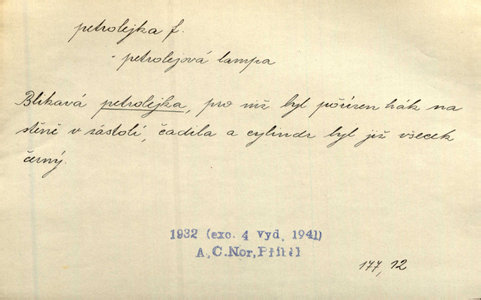 petrolejka f.
- petrolejová lampa
Blikavá petrolejka, pro niž byl pořízen hák na
stěně v zástolí, čadila a cylindr byl již všecek
černý.
1932 (exc. 4 vyd, 1941)
A.C.Nor, Přítěl
177, 12